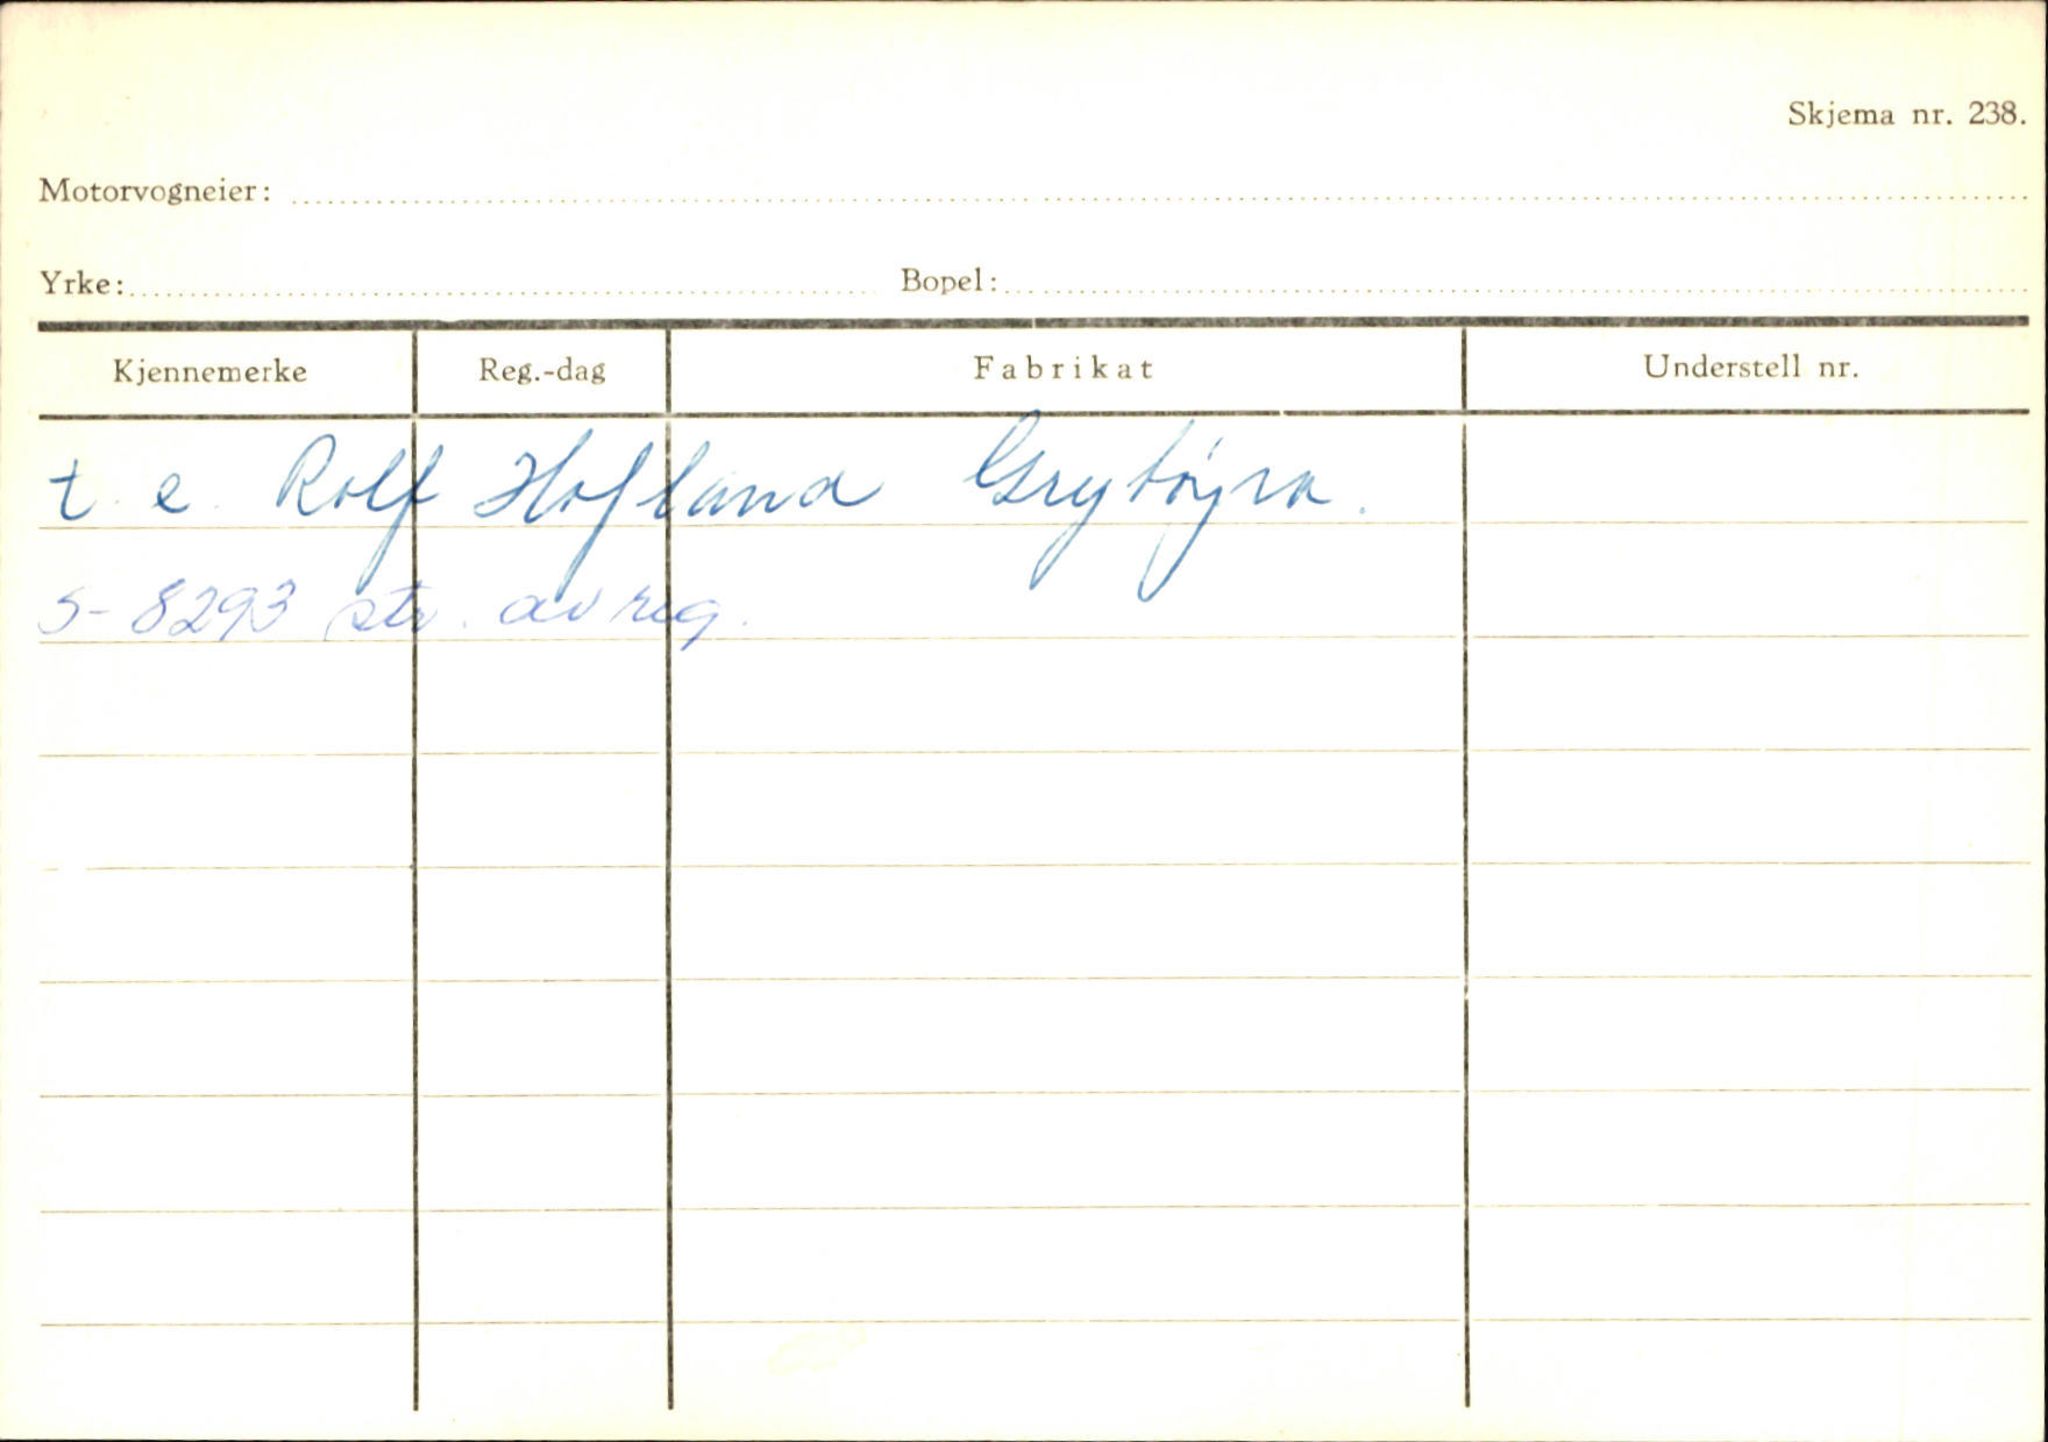 Skjema nr. 238.
Motorvogneier:
Yrke: Bopel:
Kjennemerke Reg.-dag Fabrikat Understell nr.
t. e. Rolf Hofland Grytøyra.
S-8293 str. av reg.